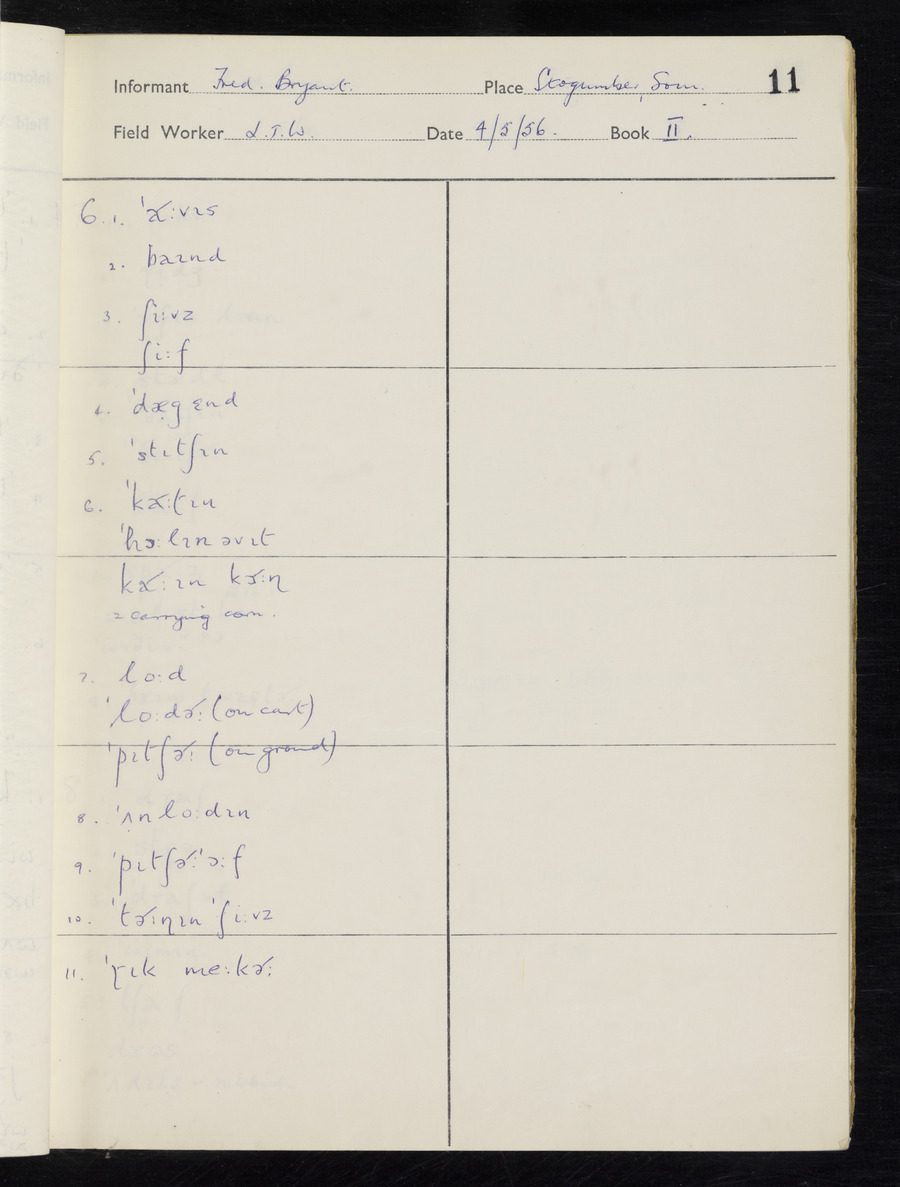 Informant Fred. Bryant. Place Stogumber, Som. 11
Field Worker S.T.W. Date 4/5/56. Book II.
6. 1. ˈæ˞:vɪs
2. baɪnd
3. ʃɪ:vz
ʃi:f
4. ˈdæg ɛnd
5. ˈstɪtʃɪn
6. ˈkæ˞:ʈɪn
ˈhɔ:lɪn əv ɪt
kæ˞:ɪn kɔ˞:ɳ
= carrying corn.
7. lo:d
ˈlo:də˞: (on cart)
ˈpɪtʃə˞: (on ground)
8. ˈʌnlo:dɪn
9. ˈpɪtʃə˞:ˈɔ:f
10. ˈtə˞:ɳɪn ˈʃi:vz
11. ˈɽɪk me:kə˞: